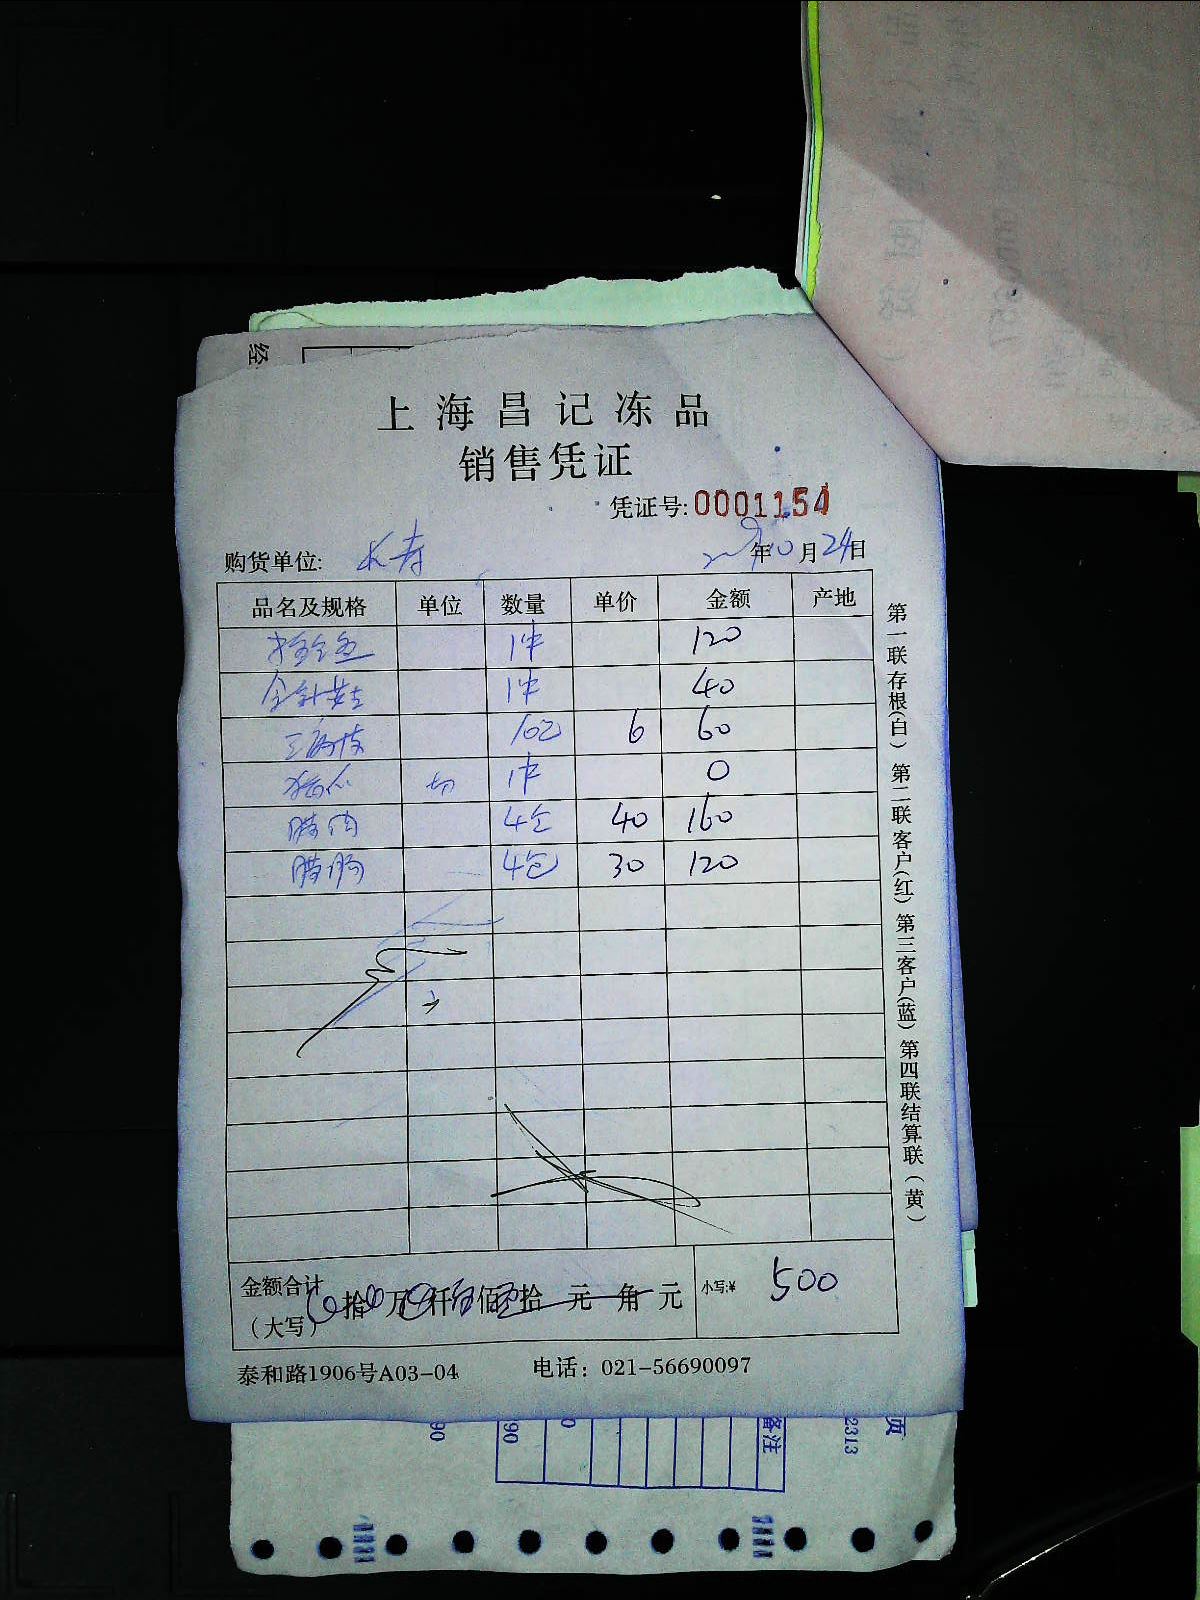 上海昌记冻品
销售凭证
凭证号:0001154
购货单位: 长寿 年10月24日
品名及规格 单位 数量 单价 金额 产地
1件 120
金针菇 1件 40
10包 6 60
切 1件 0
腊肉 4包 40 160
腊肠 4包 30 120
金额合计
(大写) 拾 万 仟 佰 拾 元 角 元 小写:¥ 500
泰和路1906号A03-04 电话: 021-56690097
第一联存根(白) 第二联客户(红) 第三客户(蓝) 第四联结算联(黄)
备注
2313
页
90
90
0